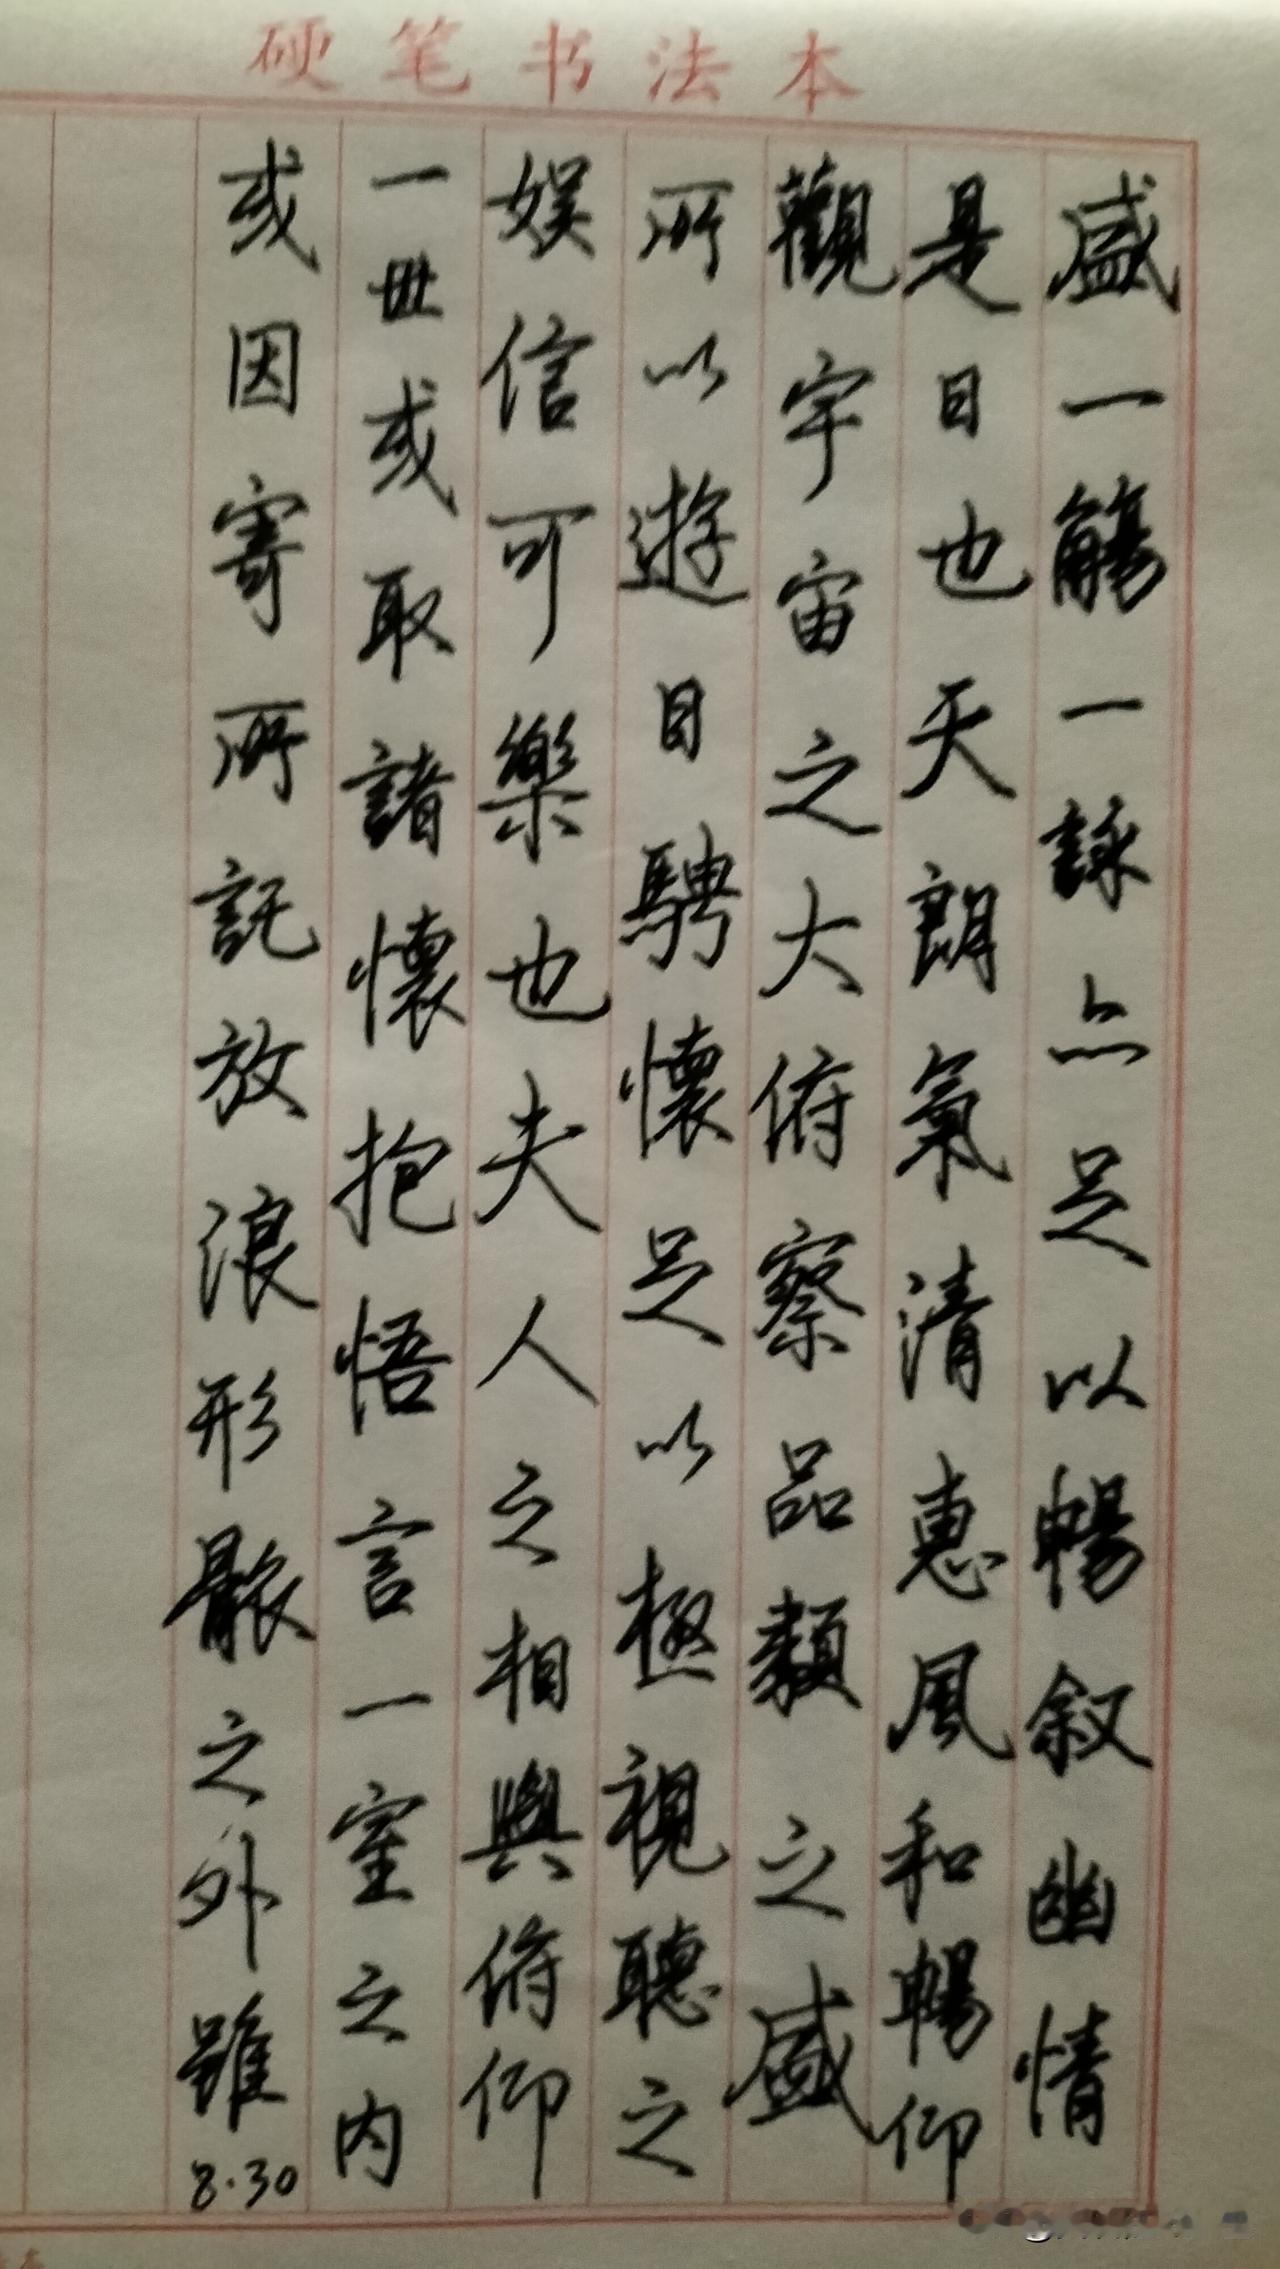 硬笔书法本
盛一觴一詠亦足以暢叙幽情
是日也天朗氣清惠風和暢仰
觀宇宙之大俯察品類之盛
所以遊目騁懷足以極視聽之
娱信可樂也夫人之相與俯仰
一世或取諸懷抱悟言一室之内
或因寄所託放浪形骸之外雖
8.30